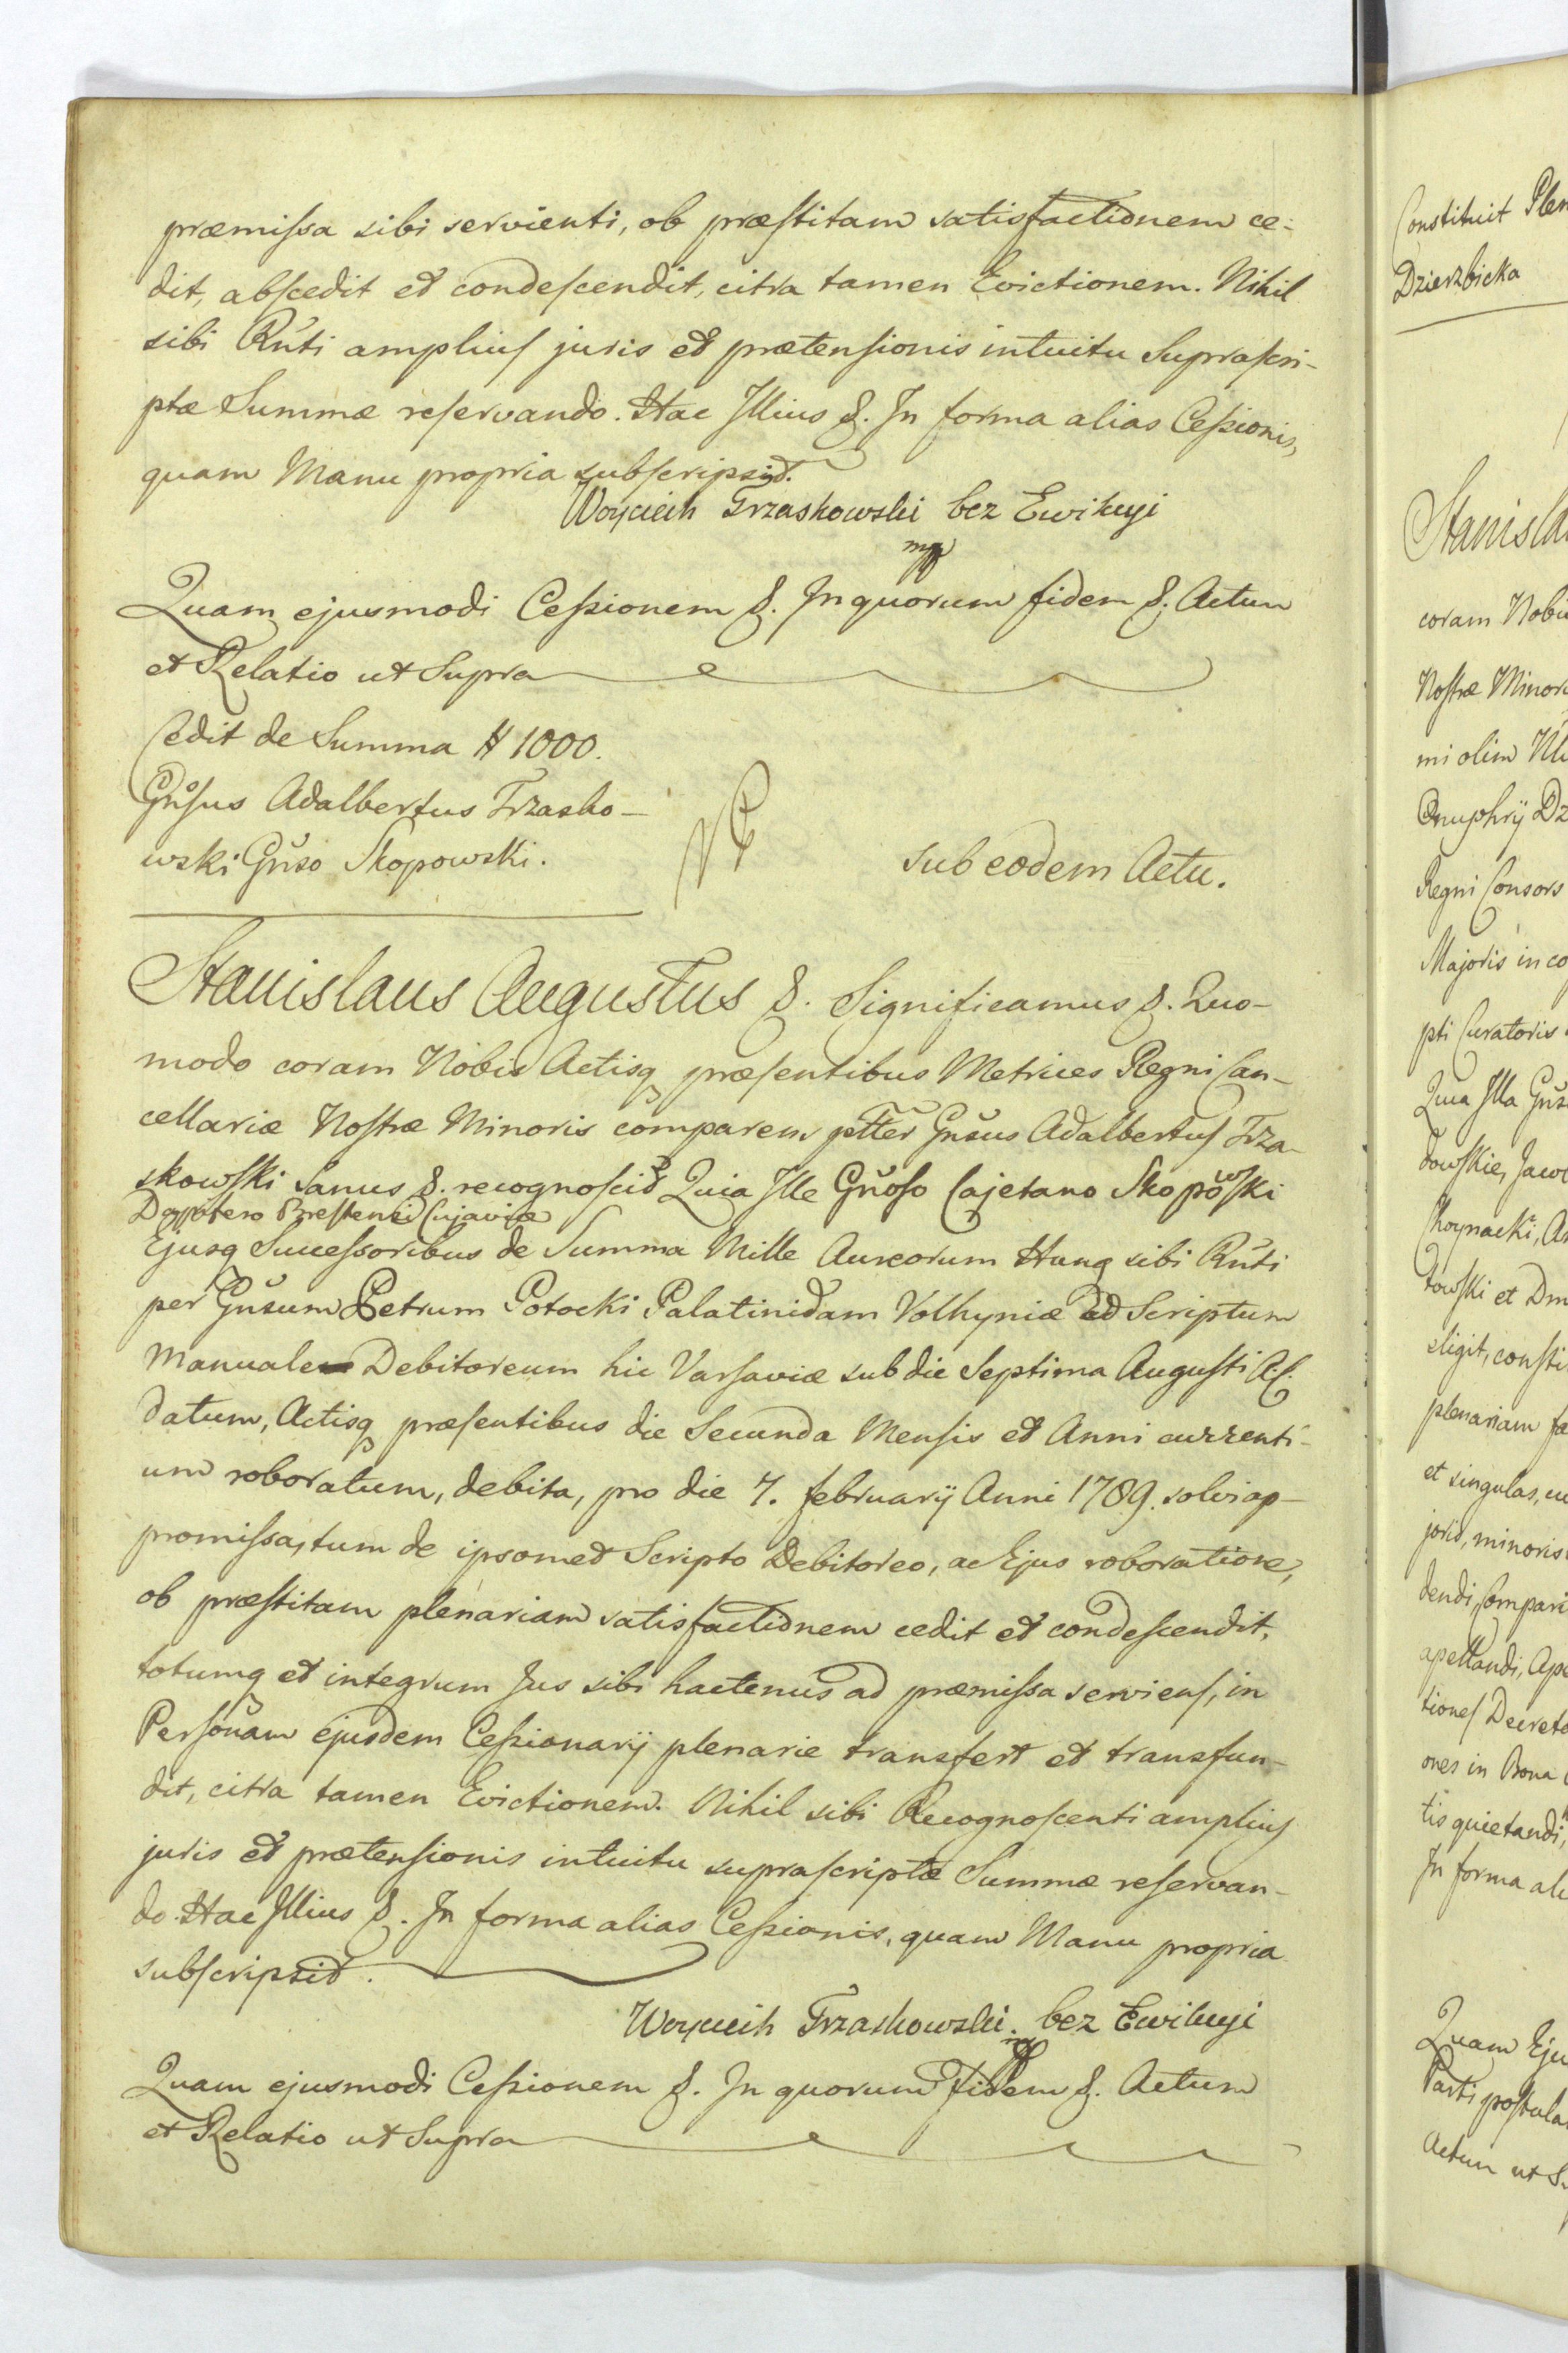 præmissa sibi servienti, ob præstitam satisfactionem ce-
dit, abscedit et condescendit, citra tamen Evictionem. Nihil
sibi Rñti amplius juris et prætensionis intuitu Suprascri-
ptæ Summæ reservando. Hac Illius &. In forma alias Cessionis,
quam Manu propria subscripsit.
Woyciech Trzaskowski bez Ewikcyi
mpp
Quam ejusmodi Cessionem &. In quorum fidem &. Actum
et Relatio ut Supra
Cedit de Summa # 1000.
Gñsus Adalbertus Trzasko-
wski Gñso Skopowski.
sub eodem Actu.
Stanislaus Augustus &. Significamus &. Quo-
modo coram Nobis Actisq præsentibus Metrices Regni Can-
cellariæ Nostræ Minoris comparens ptter Gñsus Adalbertus Trza-
skowski Sanus &. recognoscit Quia Ille Gñoso Cajetano Skopowski
Dapifero Brestensi Cujaviæ
Ejusq Successoribus de Summa Mille Aureorum Hung sibi Rñti
per Gñsum Petrum Potocki Palatinidam Volhyniæ ad Scriptum
Manuale Debitoreum hic Varsaviæ sub die Septima Augusti A. C.
datum, Actisq præsentibus die Secunda Mensis et Anni currenti-
um roboratum, debita, pro die 7. february Anni 1789. solvi ap-
promissa, tum de ipsomet Scripto Debitoreo, ac Ejus roboratione,
ob præstitam plenariam satisfactionem cedit et condescendit,
totumq et integrum Jus sibi hactenus ad præmissa serviens, in
Personam ejusdem Cessionarij plenarie transfert et transfun-
dit, citra tamen Evictionem. Nihil sibi Recognoscenti amplius
juris et prætensionis intuitu suprascriptæ Summæ reservan-
do. Hac Illius &. In forma alias Cessionis, quam Manu propria
subscripsit.
Woyciech Trzaskowski bez Ewikcyi
Quam ejusmodi Cessionem &. In quorum Fidem &. Actum
et Relatio ut Supra
Constituit Plen
Dzierzbicka
Stanisla
coram Nobis
Nostræ Minor
mi olim
Onuphrij Dz
Regni Consors
Majoris in co
pti Curatoris
Quia Illa Gñs
dowskie, Jaco
Choynacki, A
towski et Dn
eligit, consti
plenariam fa
et singulas,
joris, minoris
dendi, Compari
apellandi, Ape
tiones Decreto
ones in Bona
tis quietandi,
In forma ali
Quam Eju
Parti postula
Actum ut S